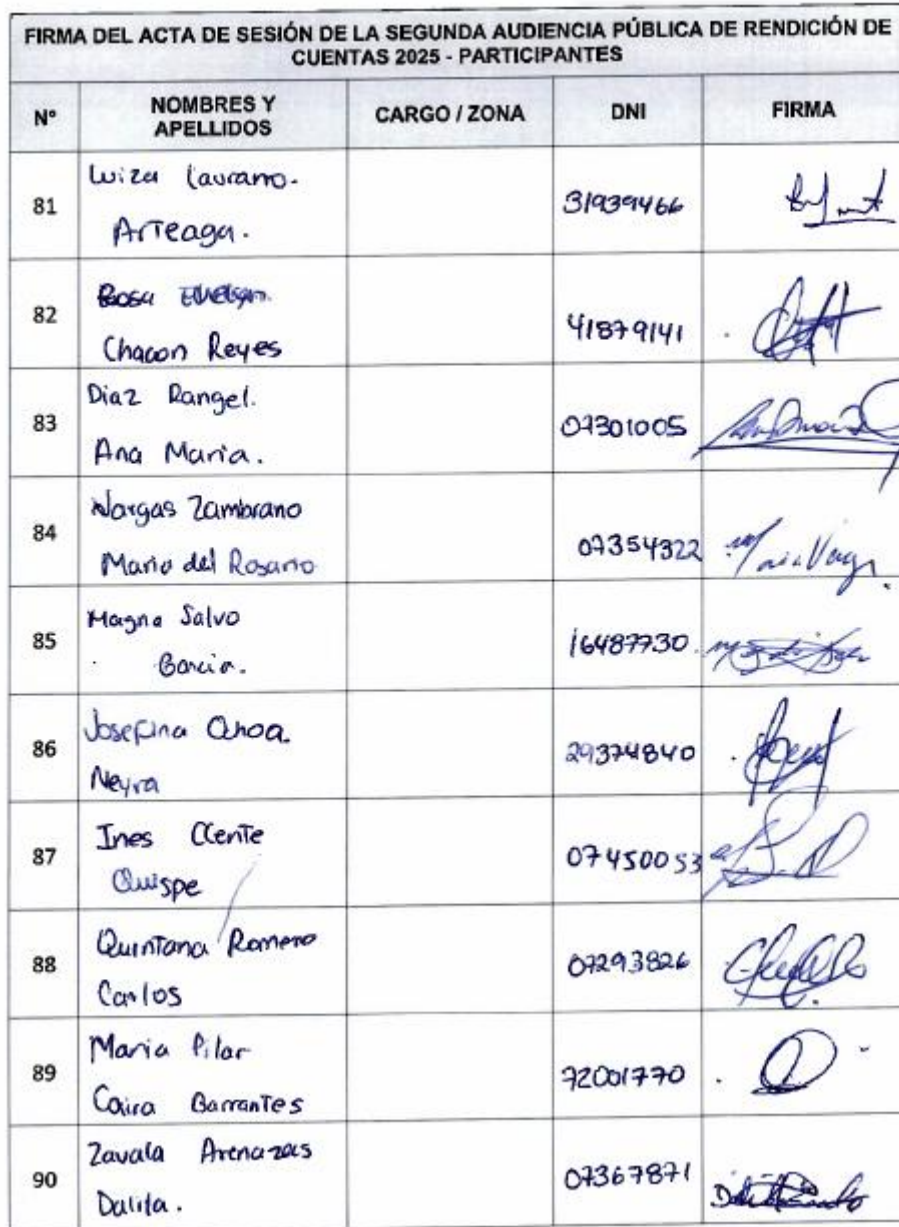 FIRMA DEL ACTA DE SESIÓN DE LA SEGUNDA AUDIENCIA PÚBLICA DE RENDICIÓN DE
CUENTAS 2025 - PARTICIPANTES
N° NOMBRES Y APELLIDOS CARGO / ZONA DNI FIRMA
81 Luiza Laurano.
Arteaga. 31939466
82 Rosa
Chacon Reyes 41879141
83 Diaz Rangel.
Ana Maria. 07301005
84 Vargas Zambrano
Maria del Rosario 07354322
85 Magna Salvo
Garcia. 16487730
86 Josefina Ochoa
Neyra 29374840
87 Ines Ccente
Quispe 07450053
88 Quintana Romero
Carlos 07293826
89 Maria Pilar
Caira Barrantes 72001770
90 Zavala
Dalila. 07367871